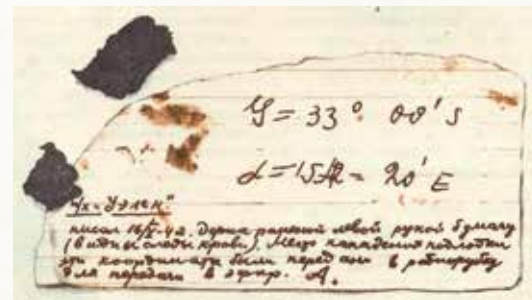 У = 33° 00' S
L = 152 = 20' E
т/х "Уэлен"
писал 16/V-42. Держа раненой левой рукой бумагу
(видны следы крови). Место нападения подлодки
эти координаты были переданы в радиорубку
для передачи в эфир. А.